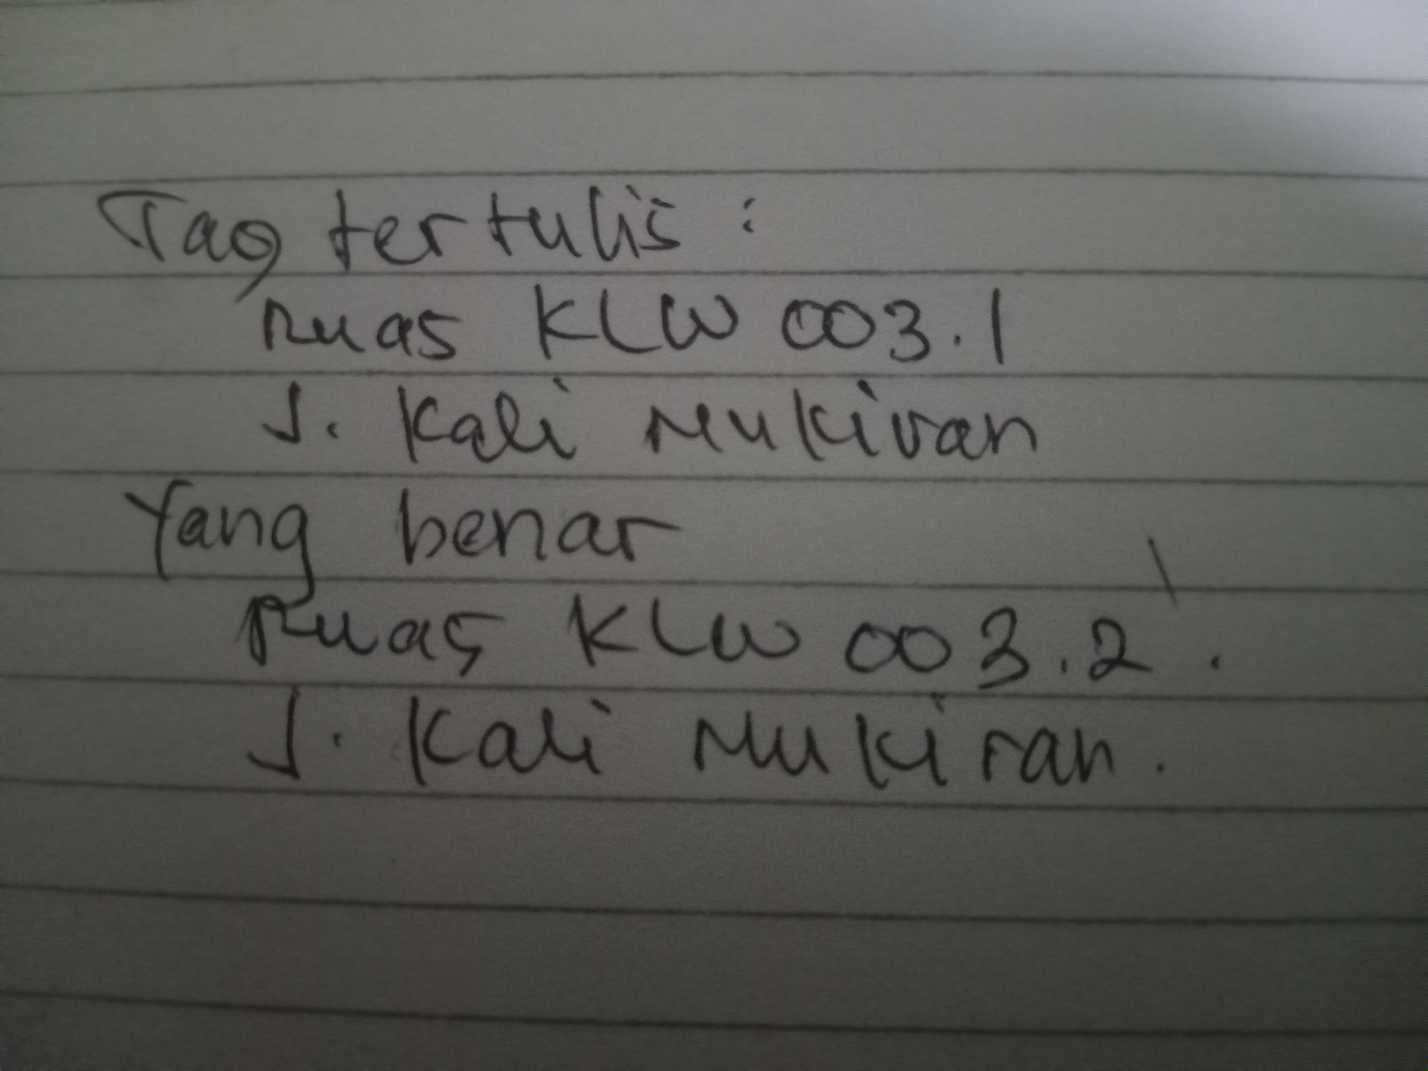 Tag tertulis :
Ruas KLW 003.1
J. Kali Mukiran
Yang benar
Ruas KLW 003.2.
J. Kali Mukiran.